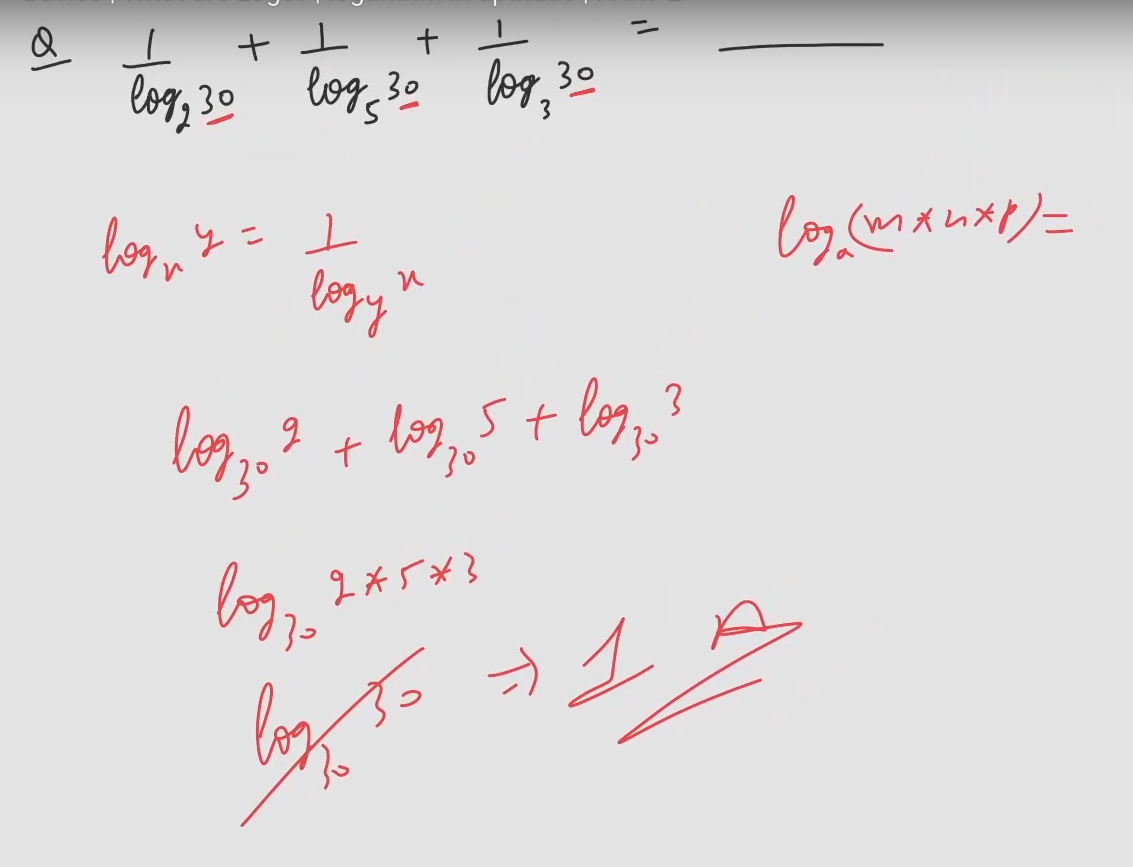 Q 1/log₂30 + 1/log₅30 + 1/log₃30 = ________
logₓ y = 1/log_y x
logₐ(m*n*p)=
log₃₀ 2 + log₃₀ 5 + log₃₀ 3
log₃₀ 2*5*3
log₃₀ 30 ⇒ 1 A